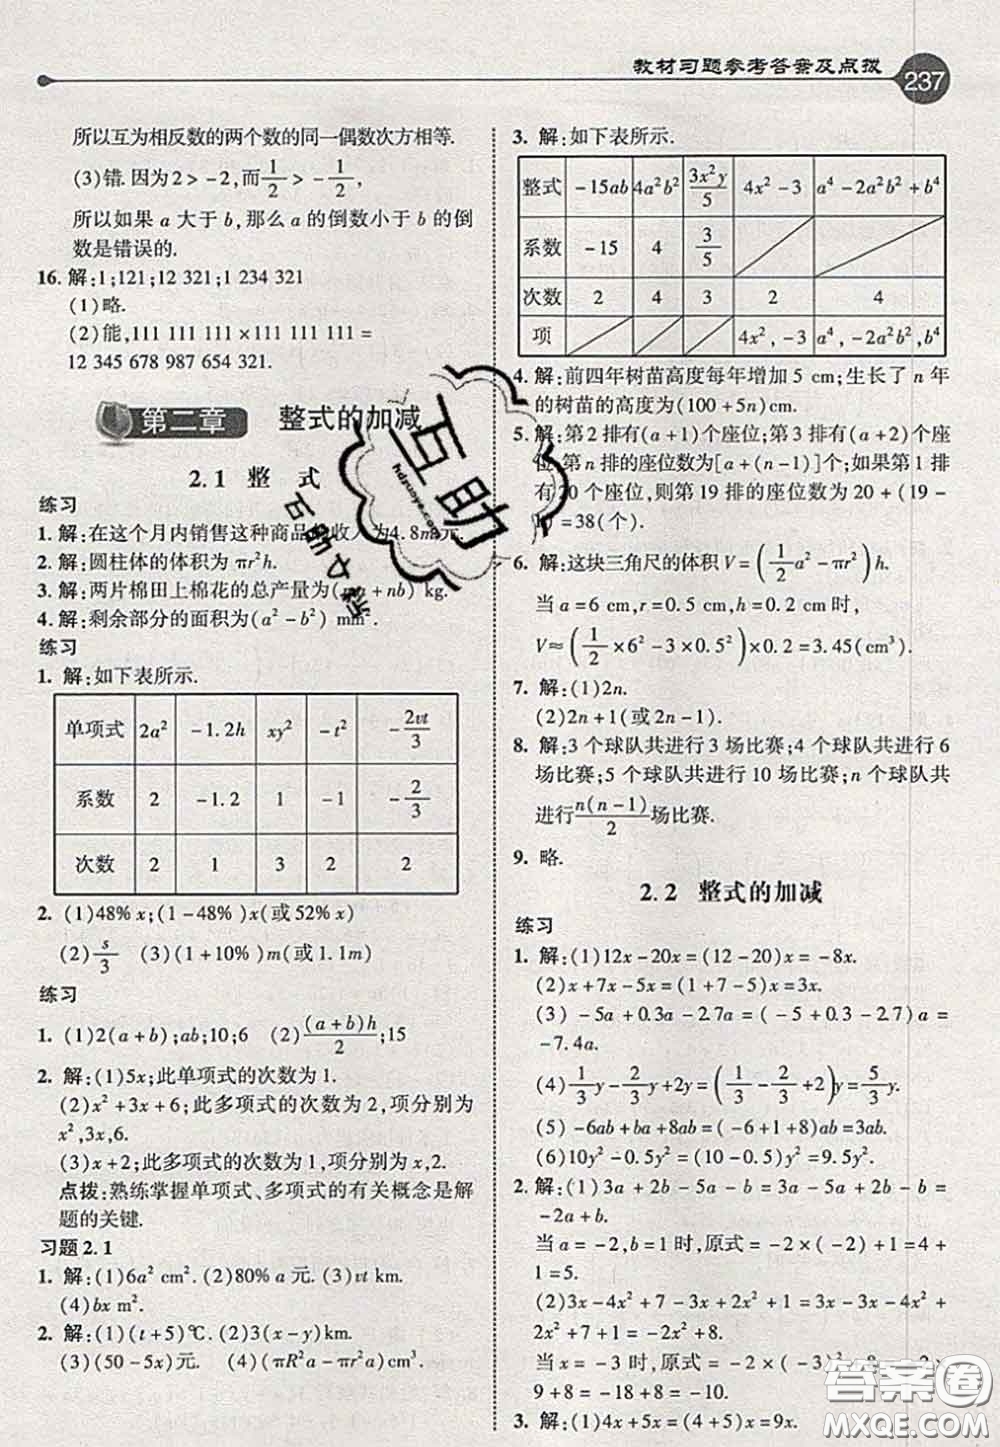 教材习题参考答案及点拨 237
所以互为相反数的两个数的同一偶数次方相等.
(3)错.因为2>-2,而1/2>-1/2,
所以如果a大于b,那么a的倒数小于b的倒
数是错误的.
16. 解:1;121;12 321;1 234 321
(1)略.
(2)能,111 111 111×111 111 111=
12 345 678 987 654 321.
第二章 整式的加减
2.1 整 式
练习
1. 解:在这个月内销售这种商品的收入为4.8m元.
2. 解:圆柱体的体积为πr²h.
3. 解:两片棉田上棉花的总产量为( + nb) kg.
4. 解:剩余部分的面积为(a²-b²) mm².
练习
1. 解:如下表所示.
单项式 2a² -1.2h xy² -t² -2vt/3
系数 2 -1.2 1 -1 -2/3
次数 2 1 3 2 2
2. (1)48% x;(1-48%)x(或52% x)
(2)s/3 (3)(1+10%)m(或1.1m)
练习
1. (1)2(a+b);ab;10;6 (2)(a+b)h/2;15
2. 解:(1)5x;此单项式的次数为1.
(2)x²+3x+6;此多项式的次数为2,项分别为
x²,3x,6.
(3)x+2;此多项式的次数为1,项分别为x,2.
点拨:熟练掌握单项式、多项式的有关概念是解
题的关键.
习题2.1
1. 解:(1)6a² cm². (2)80% a元. (3)vt km.
(4)bx m².
2. 解:(1)(t+5)℃. (2)3(x-y)km.
(3)(50-5x)元. (4)(πR²a-πr²a)cm³.
3. 解:如下表所示.
整式 -15ab 4a²b² 3x²y/5 4x²-3 a⁴-2a²b²+b⁴
系数 -15 4 3/5
次数 2 4 3 2 4
项 4x²,-3 a⁴,-2a²b²,b⁴
4. 解:前四年树苗高度每年增加5 cm;生长了n年
的树苗的高度为(100+5n)cm.
5. 解:第2排有(a+1)个座位;第3排有(a+2)个座
位,第n排的座位数为[a+(n-1)]个;如果第1排
有20个座位,则第19排的座位数为20+(19-
1)=38(个).
6. 解:这块三角尺的体积V=(1/2a²-πr²)h.
当a=6 cm,r=0.5 cm,h=0.2 cm时,
V≈(1/2×6²-3×0.5²)×0.2=3.45(cm³).
7. 解:(1)2n.
(2)2n+1(或2n-1).
8. 解:3个球队共进行3场比赛;4个球队共进行6
场比赛;5个球队共进行10场比赛;n个球队共
进行n(n-1)/2场比赛.
9. 略.
2.2 整式的加减
练习
1. 解:(1)12x-20x=(12-20)x=-8x.
(2)x+7x-5x=(1+7-5)x=3x.
(3)-5a+0.3a-2.7a=(-5+0.3-2.7)a=
-7.4a.
(4)1/3y-2/3y+2y=(1/3-2/3+2)y=5/3y.
(5)-6ab+ba+8ab=(-6+1+8)ab=3ab.
(6)10y²-0.5y²=(10-0.5)y²=9.5y².
2. 解:(1)3a+2b-5a-b=(3-5)a+(2-1)b=
-2a+b.
当a=-2,b=1时,原式=-2×(-2)+1=4+
1=5.
(2)3x-4x²+7-3x+2x²+1=(-4+2)x²+
2x²+7+1=-2x²+8.
当x=-3时,原式=-2×(-3)²+8=-2×
9+8=-18+8=-10.
3. 解:(1)4x+5x=(4+5)x=9x.
互助
hdzuoye.com
互助文库
答案圈
MXQE.COM